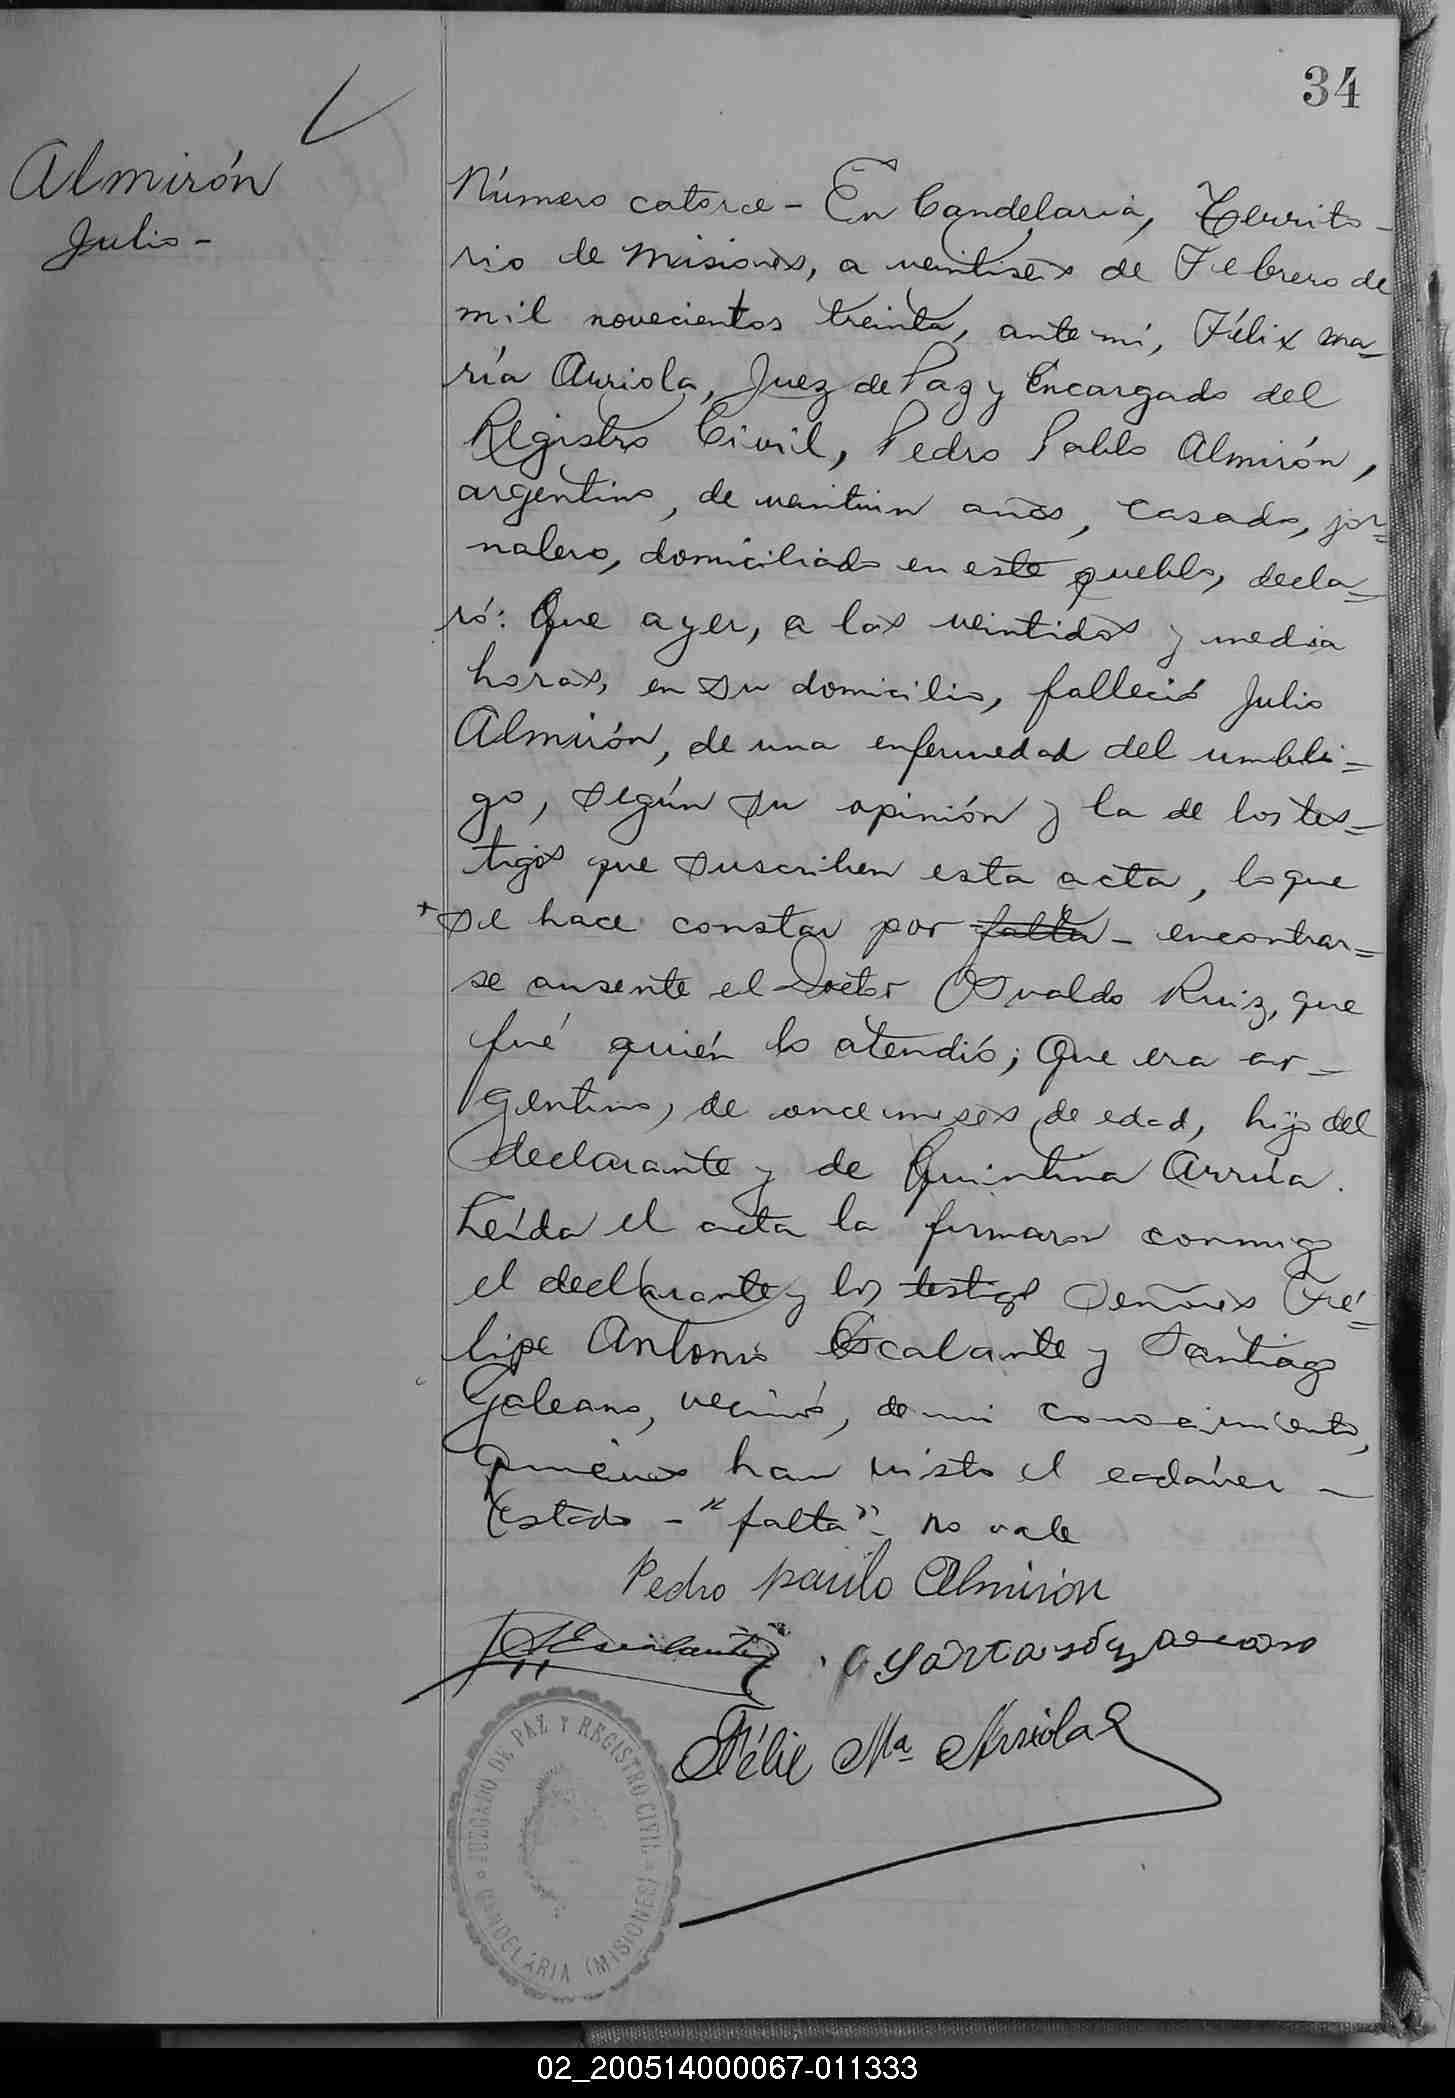 34
Almirón
Julio -
Número catorce - En Candelaria, Territo-
rio de Misiones, a veintiseis de Febrero de
mil novecientos treinta, ante mí, Félix Ma-
ría Arriola, Juez de Paz y Encargado del
Registro Civil, Pedro Pablo Almirón,
argentino, de veintiun años, casado, jor=
nalero, domiciliado en este pueblo, decla=
ró: Que ayer, a las veintidos y media
horas, en su domicilio, falleció Julio
Almirón, de una enfermedad del umbli=
go, según su opinión y la de los tes=
tigos que suscriben esta acta, lo que
se hace constar por falta - encontrar=
se ausente el Doctor Osvaldo Ruiz, que
fué quién lo atendió; Que era ar-
gentino, de once meses de edad, hijo del
declarante y de Quintina Arrúa.
Leída el acta la firmaron conmigo
el declarante y los testigos Señores Fé=
lipe Antonio Escalante y Santiago
Galeano, vecinos, de mi conocimiento,
quienes han visto el cadáver -
Testado - "falta" - no vale
Pedro Paulo Almirón
Escalante
Félix Ma. Arriola
JUZGADO DE PAZ Y REGISTRO CIVIL
CANDELARIA (MISIONES)
02_200514000067-011333